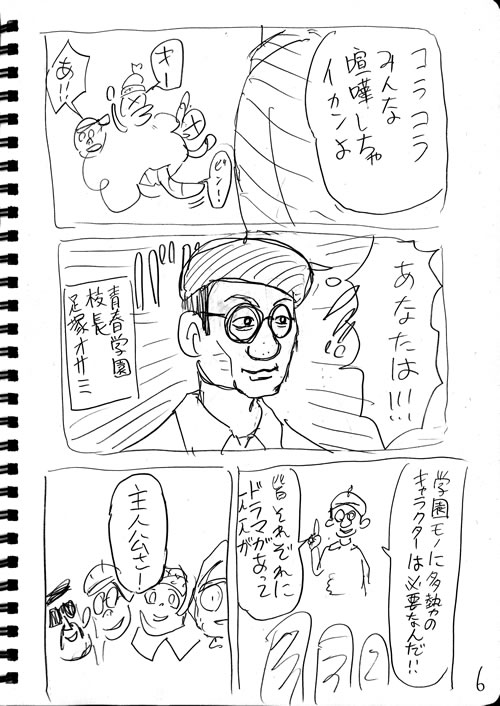 コラコラ
みんな
喧嘩しちゃ
イカンよ
オー
あ!!
ピュン!
あなたは!!!
青春学園
校長
足塚オサミ
学園モノに多勢の
キャラクターは必要なんだ!!
皆それぞれに
ドラマがあって
主人公さ…
6